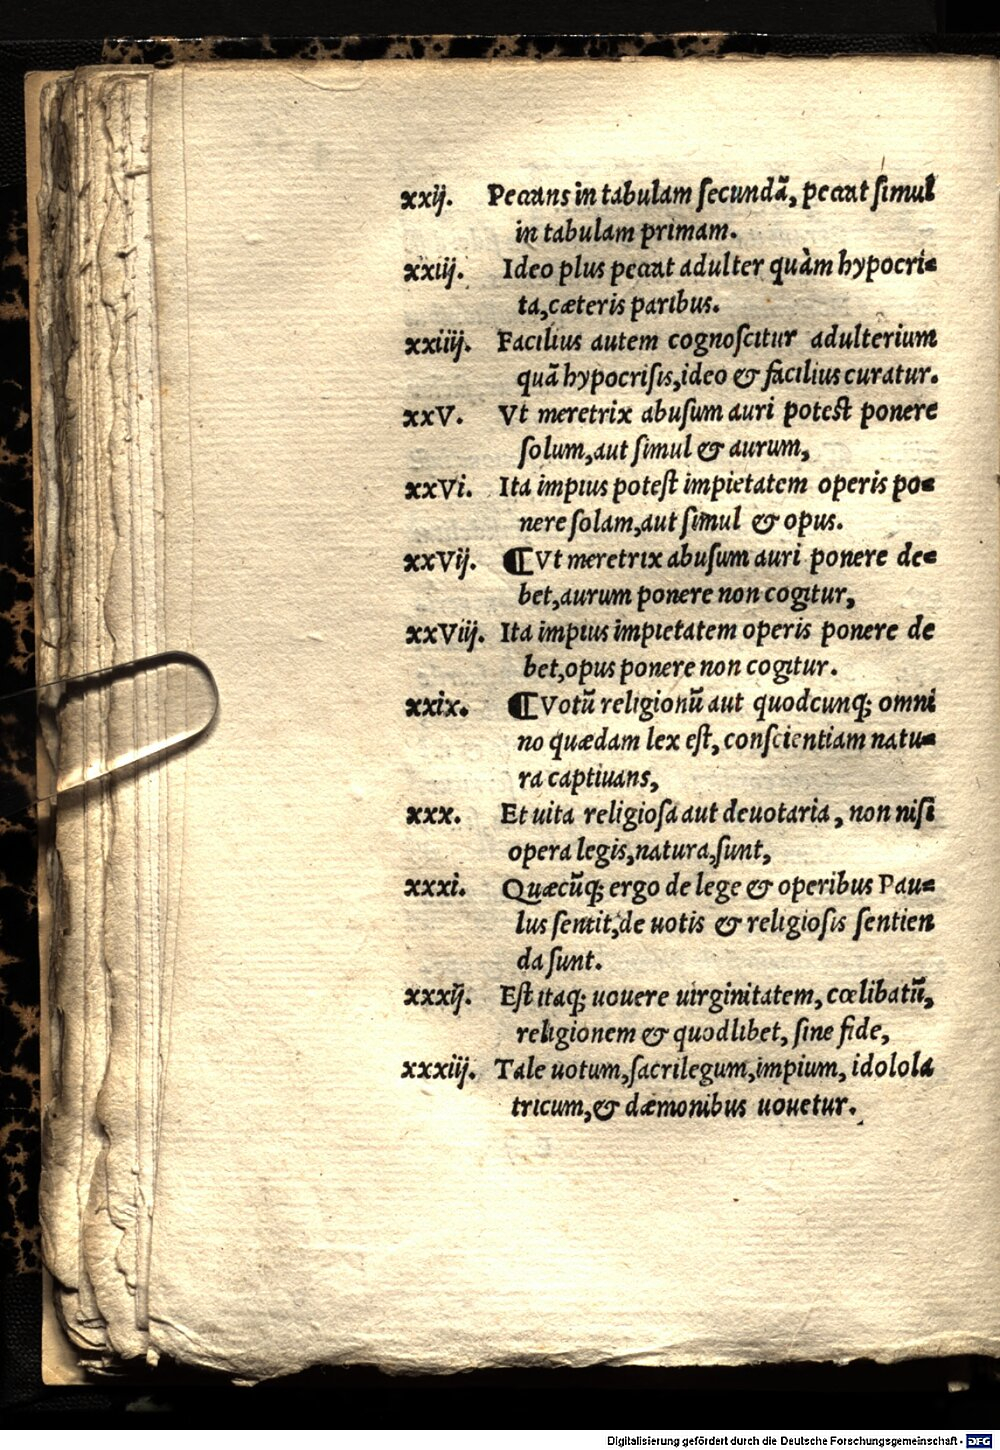 xxij. Peccans in tabulam ſecundã, peccat ſimul
in tabulam primam.
xxiij. Ideo plus peccat adulter quàm hypocri-
ta, cæteris paribus.
xxiiij. Facilius autem cognoſcitur adulterium
quã hypocriſis, ideo & facilius curatur.
xxV. Vt meretrix abuſum auri poteſt ponere
ſolum, aut ſimul & aurum,
xxVi. Ita impius poteſt impietatem operis po-
nere ſolam, aut ſimul & opus.
xxVij. ¶ Vt meretrix abuſum auri ponere de-
bet, aurum ponere non cogitur,
xxViij. Ita impius impietatem operis ponere de
bet, opus ponere non cogitur.
xxix. ¶ Votũ religionũ aut quodcunq; omni
no quædam lex eſt, conſcientiam natu-
ra captiuans,
xxx. Et uita religioſa aut deuotaria, non niſi
opera legis, natura, ſunt,
xxxi. Quæcũq; ergo de lege & operibus Pau-
lus ſentit, de uotis & religioſis ſentien
da ſunt.
xxxij. Eſt itaq; uouere uirginitatem, cœlibatũ,
religionem & quodlibet, ſine fide,
xxxiij. Tale uotum, ſacrilegum, impium, idolola
tricum, & dæmonibus uouetur.
Digitalisierung gefördert durch die Deutsche Forschungsgemeinschaft - DFG